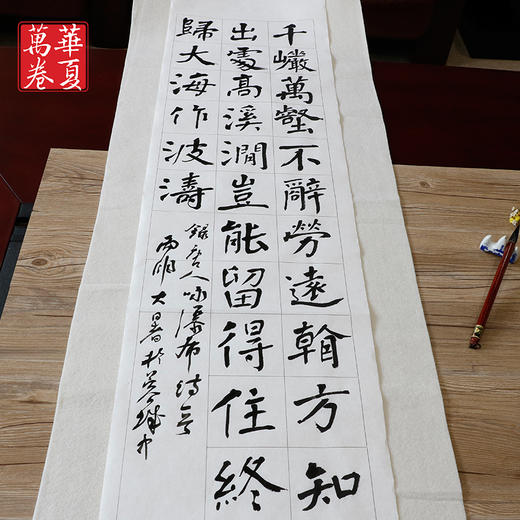 華夏
萬卷
千巖萬壑不辭勞遠翰方知
出處高溪澗豈能留得住終
歸大海作波濤
錄唐人咏瀑布詩意
大暑於